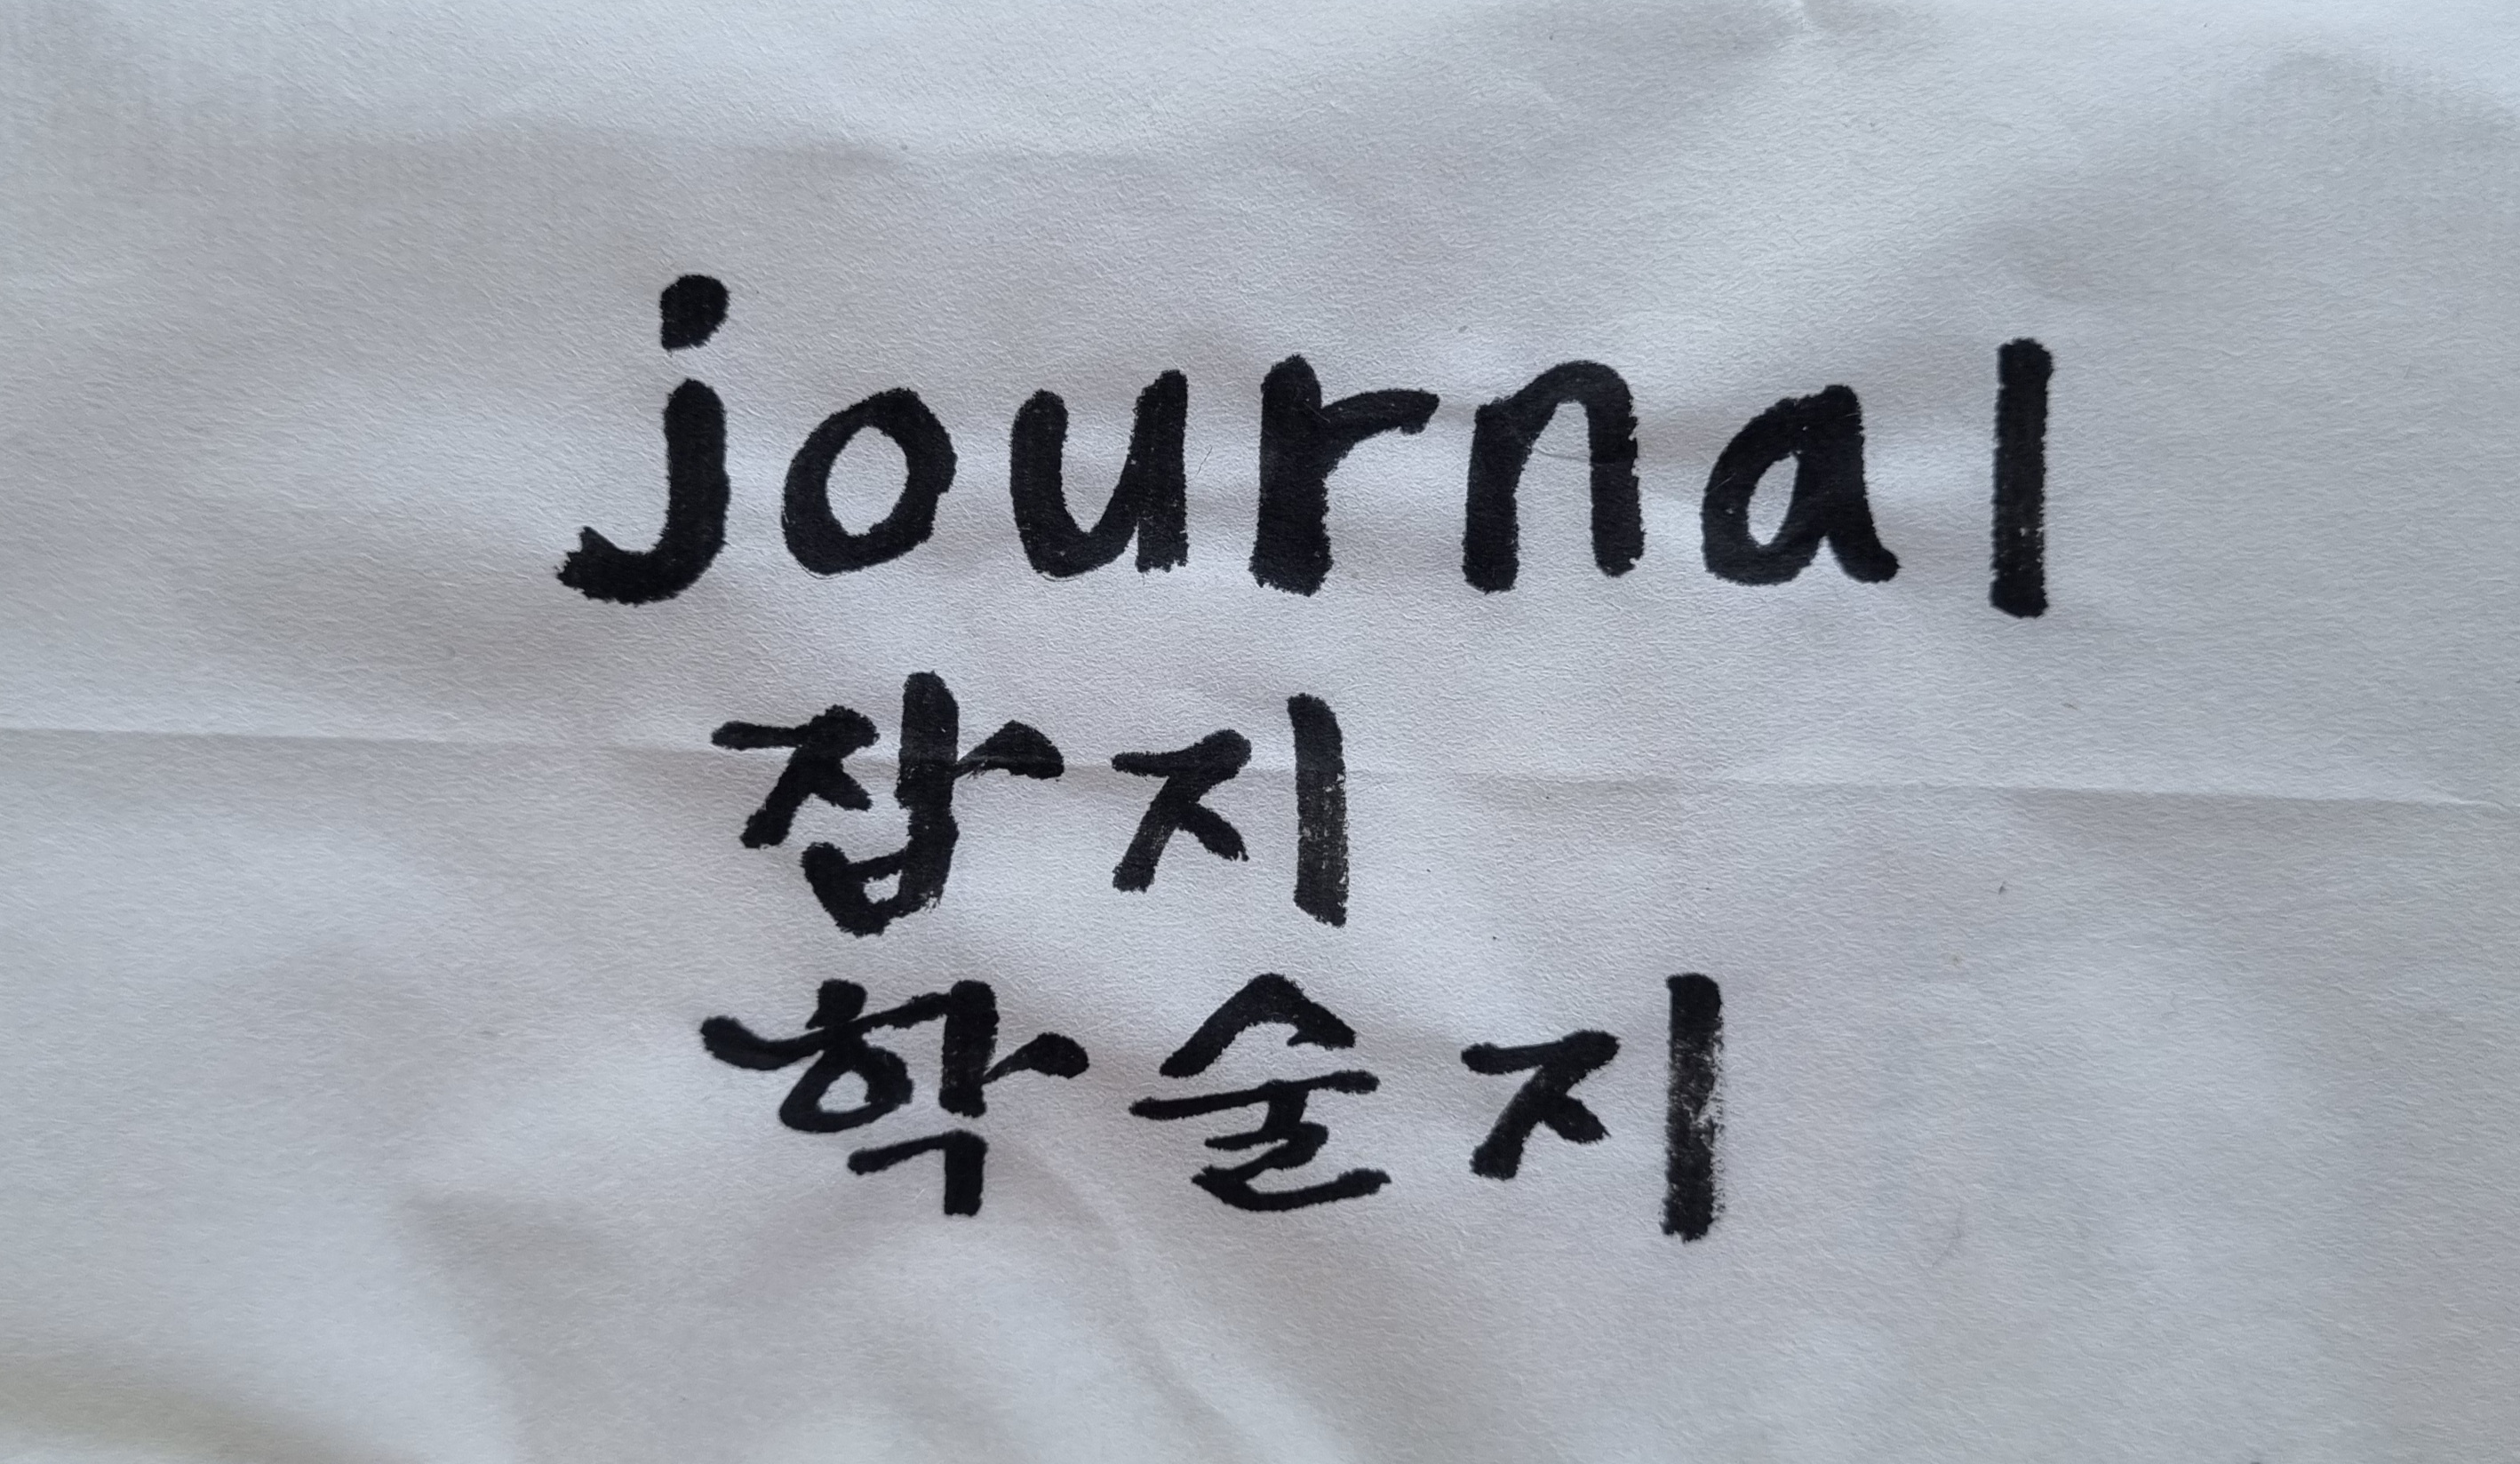 journal
잡지
학술지